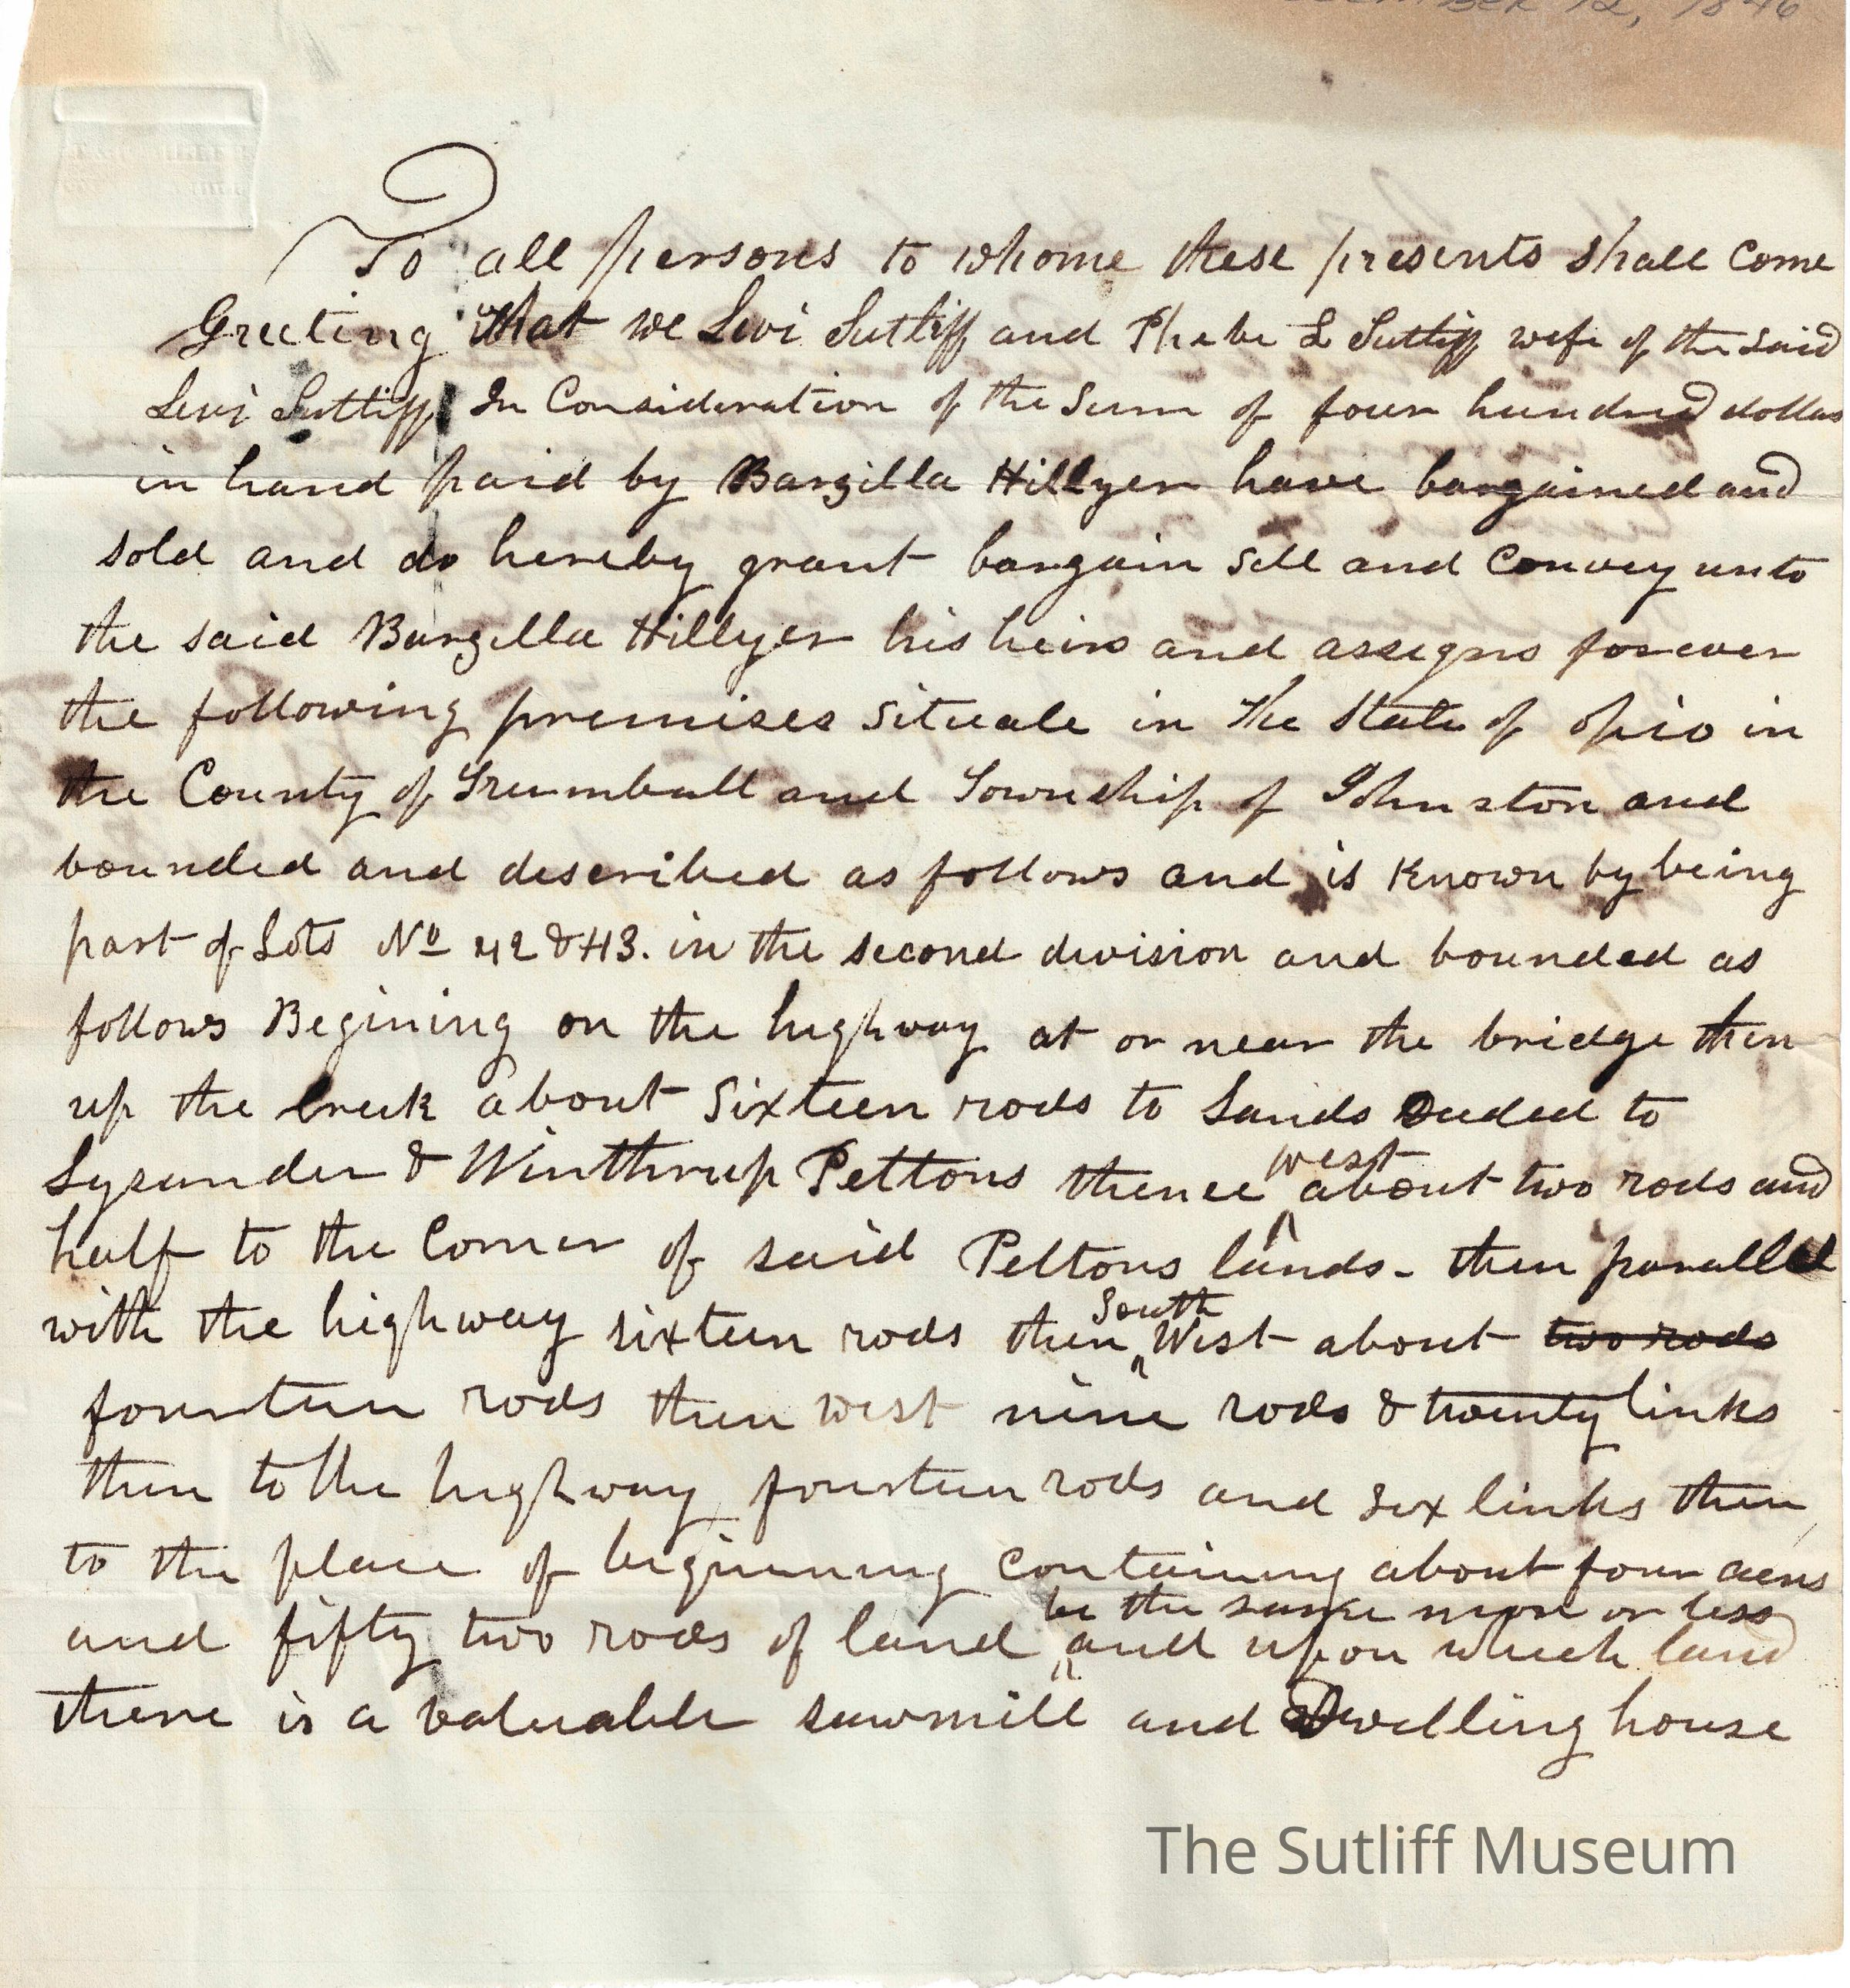 12, 1846
To all persons to whome these presents shall Come
Greeting that we Levi Sutliff and Phebe L Sutliff wife of the said
Levi Sutliff In Consideration of the Sum of four hundred dollars
in hand paid by Barzilla Hillyer have bargained and
sold and do hereby grant bargain Sell and Convey unto
the said Barzilla Hillyer his heirs and assigns forever
the following premises Situate in the State of Ohio in
the County of Trumbull and Township of Johnston and
bounded and described as follows and is Known by being
part of Lots No 42 & 43. in the second division and bounded as
follows Begining on the highway at or near the bridge then
up the Creek about Sixteen rods to Lands Deeded to
Lysander & Winthrup Peltons thence west about two rods and
half to the Corner of said Peltons lands - then parallel
with the highway sixteen rods then South West about two rods
fourteen rods then west nine rods & twenty links
then to the highway fourteen rods and six links then
to the place of beginning Containing about four acres
and fifty two rods of land be the same more or less and upon which land
there is a valuable sawmill and Dwelling house
The Sutliff Museum